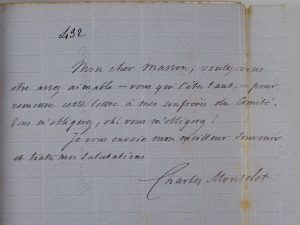 432
Mon cher Masson, voulez-vous
être assez aimable — vous qui l'êtes tant, — pour
remettre cette lettre à mes confrères du Comité.
Vous m'obligerez, oh! vous m'obligerez!
Je vous envoie mon meilleur souvenir
et toutes mes salutations
Charles Monselet